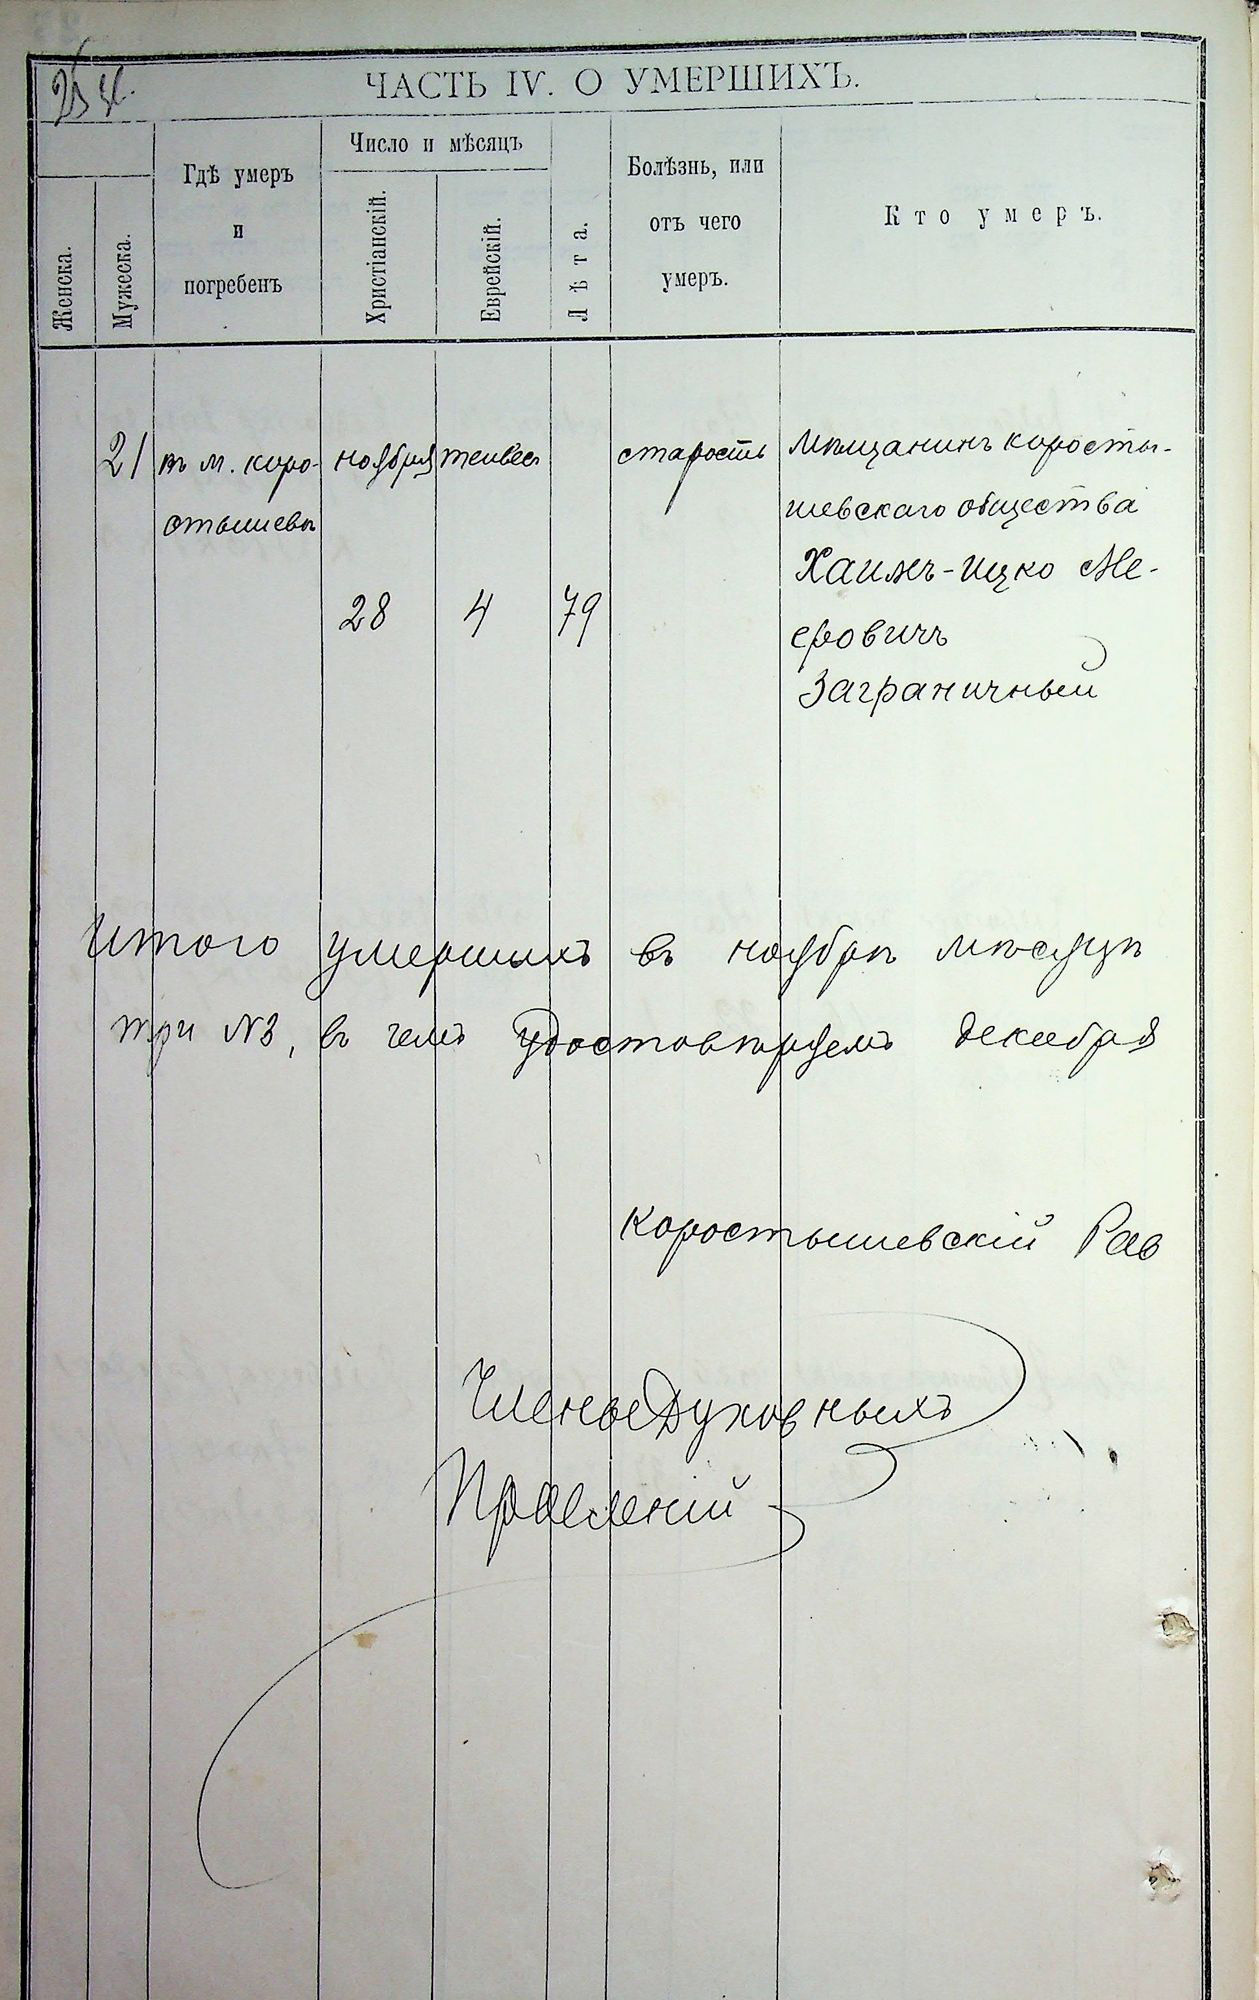 ЧАСТЬ IV. О УМЕРШИХЪ.
Женска.
Мужеска.
Гдѣ умеръ
и
погребенъ
Число и мѣсяцъ
Христіанскій.
Еврейскій.
Лѣта.
Болѣзнь, или
отъ чего
умеръ.
Кто умеръ.
21
въ м. Коро-
стышевѣ
ноября
28
тейвеса
4
79
старость
мѣщанинъ Коросты-
шевскаго общества
Хаимъ-Ицко Ме-
еровичъ
Заграничный
Итого умершихъ въ ноябрѣ мѣсяцѣ
три №3, въ чемъ удостовѣряемъ декабря
Коростышевскій Рав
Члены Духовныхъ
Правленій